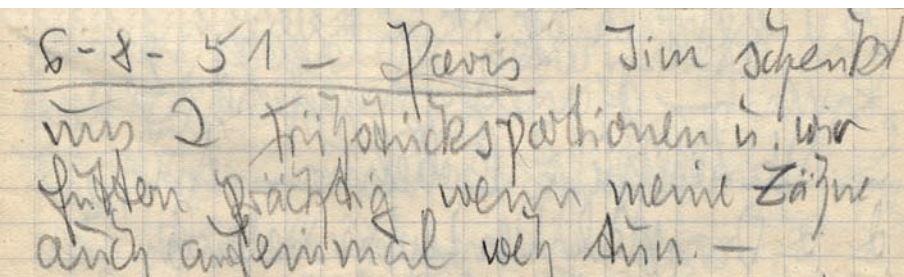 6-8-51 - Paris Jim schenkt
uns 2 Frühstücksportionen u. wir
futtern prächtig wenn meine Zähne
auch aufeinmal weh tun. -